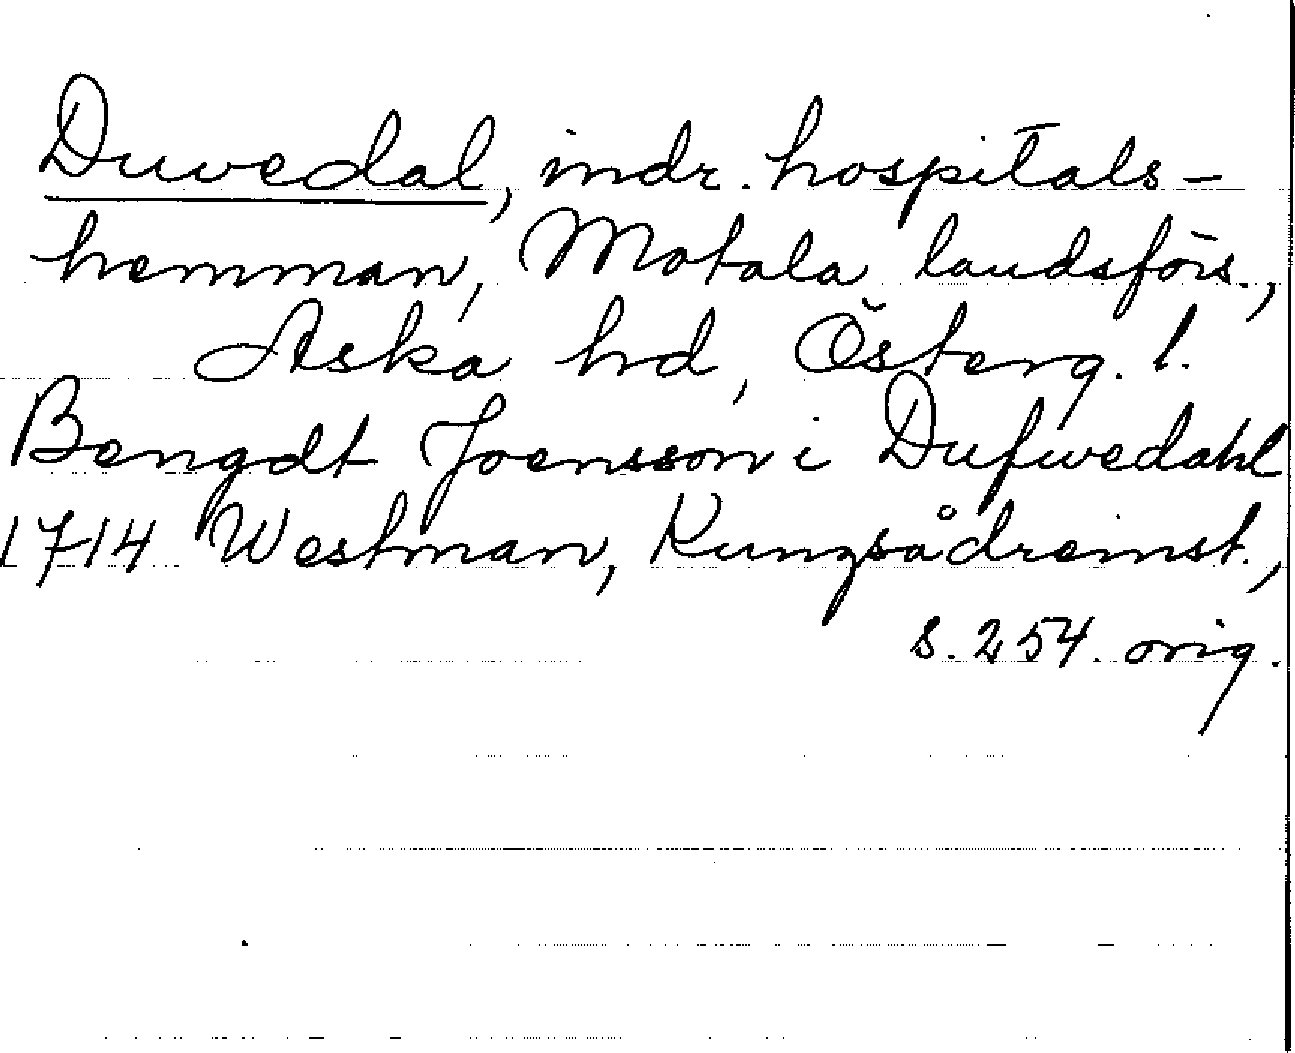 Duvedal, indr. hospitals-
hemman, Motala landsförs.,
Aska hd, Österg. l.
Bengdt Joensson i Dufwedahl
1714 Westman, Kungsådreinst.,
s. 254. orig.